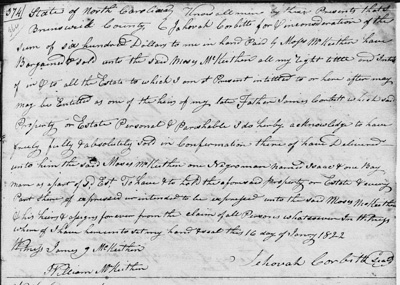 374 State of North Carolina Know all men by these Presents that I
Brunswick County Jehovah Corbitt for & in consideration of the
sum of six hundred Dollars to me in hand Paid by Moses McKeithin have
Bargained & sold unto the said Moses McKeithin all my Right tittle and
of in & to all the Estate to which I am at Present intitled to or have after may
may be Entitled as one of the heirs of my late Father James Corbitt which said
Property or Estate Personal & Parshable I do hereby acknowledge to have
freely fully & absolutely Sold in Confirmation there of have Delivered
unto him the said Moses McKeithin one Negro man Named Isaac & one Bay
mare as apart of sd Est. To have & to hold the aforesaid Property or Estate & every
Part there of expressed or intended to be expressed unto the said Moses McKeithin
& his heirs & assigns forever from the claim of all Persons whatsoever In Witness
whereof I have hereunto set my hand & seal this 16 day of Janry 1822
Witness James J McKeithin
William McKeithin Jehovah Corbitt Seal